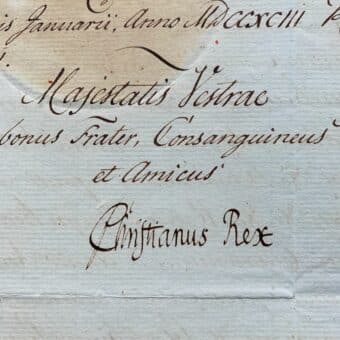 is Januarii, Anno MDCCXCIII
Majestatis Vestrae
bonus Frater, Consanguineus
et Amicus
Christianus Rex